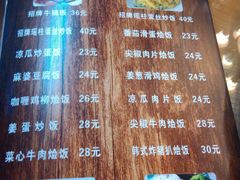 招牌牛腩饭 36元
招牌瑶柱蛋丝炒饭 40元
招牌瑶柱蛋丝炒饭 40元
番茄滑蛋烩饭 23元
凉瓜炒蛋饭 23元
尖椒肉片烩饭 24元
麻婆豆腐饭 24元
姜葱滑鸡烩饭 24元
咖喱鸡柳烩饭 26元
凉瓜肉片饭 24元
姜蛋炒饭 28元
尖椒牛肉烩饭 28元
菜心牛肉烩饭 28元
韩式炸猪扒烩饭 30元